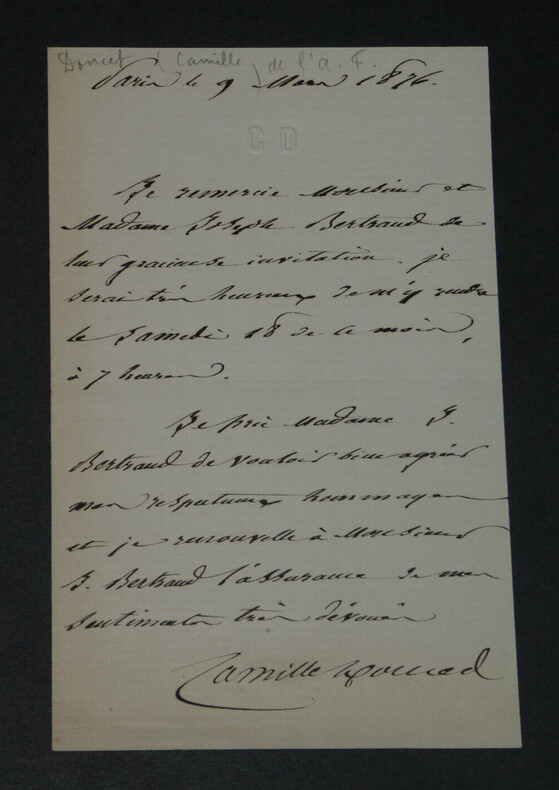 Doucet (Camille) de l'A. F.
Paris le 9 Mars 1876.
C D
Je remercie Monsieur et
Madame Joseph Bertrand de
leur gracieuse invitation. je
serai très heureux de m'y rendre
le Samedi 18 de ce mois,
à 7 heures.
Je prie Madame J.
Bertrand de vouloir bien agréer
mes respectueux hommages
et je renouvelle à Monsieur
J. Bertrand l'assurance de mes
sentiments très dévoués
Camille Doucet